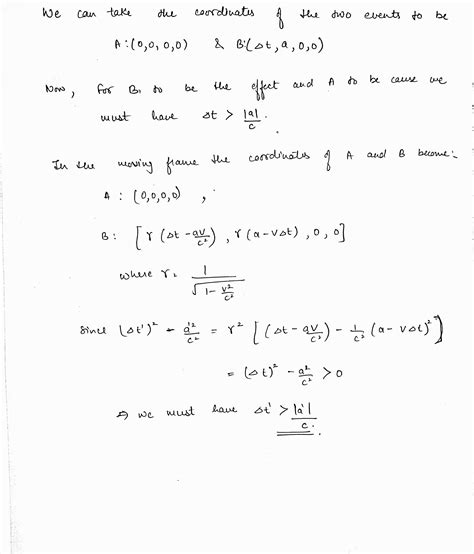 We can take the coordinates of the two events to be
A:(0,0,0,0) & B:(Δt, a, 0, 0)
Now, for B, to be the effect and A to be cause we
must have Δt > |a|/c.
In the moving frame the coordinates of A and B become:-
A : (0,0,0,0) ,
B: [γ(Δt - av/c²), γ(a-vΔt), 0, 0]
where γ = 1/√(1 - v²/c²)
Since (Δt')² - a'²/c² = γ² [(Δt - av/c²) - 1/c² (a - vΔt)²]
= (Δt)² - a²/c² > 0
⇒ we must have Δt' > |a'|/c.